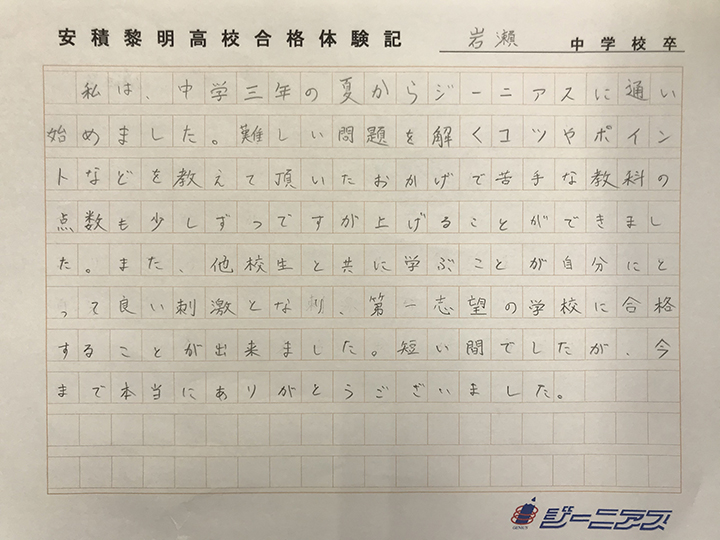 安積黎明高校合格体験記 岩瀬 中学校卒
私は、中学三年の夏からジーニアスに通い
始めました。難しい問題を解くコツやポイン
トなどを教えて頂いたおかげで苦手な教科の
点数も少しずつですが上げることができまし
た。また、他校生と共に学ぶことが自分にと
って良い刺激となり、第一志望の学校に合格
することが出来ました。短い間でしたが、今
まで本当にありがとうございました。
GENIUS ジーニアス